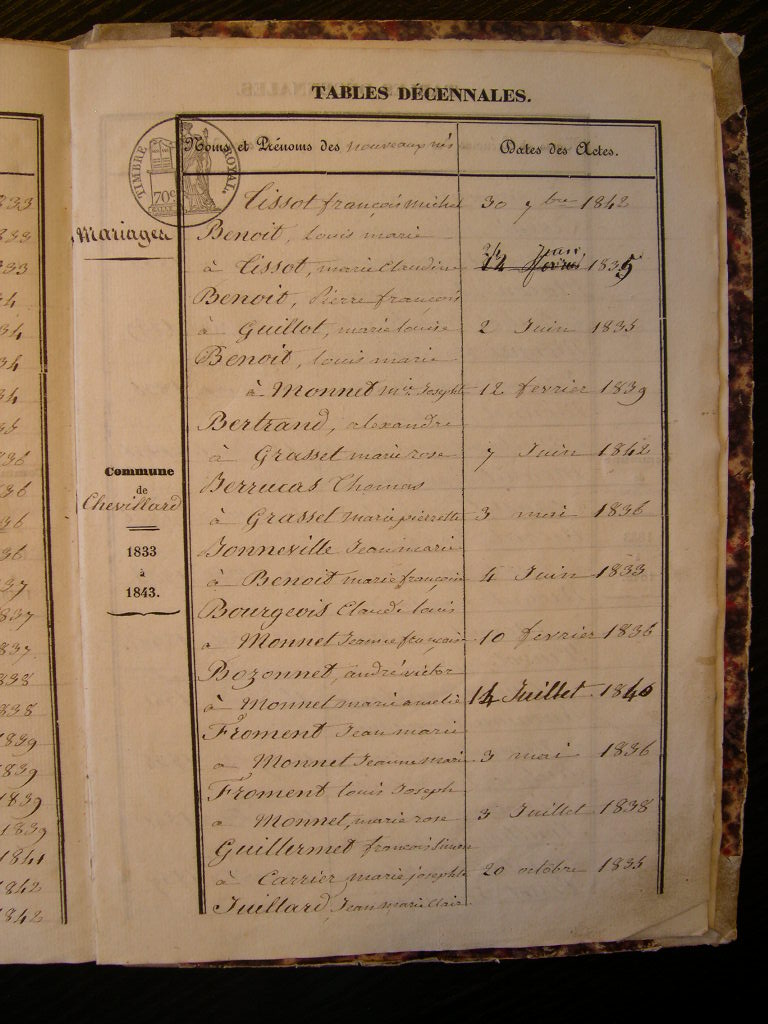 TABLES DÉCENNALES.
Noms et Prénoms des nouveaux nés
Dates des Actes.
TIMBRE ROYAL.
70c
Tissot françois michel 30 7bre 1842
Mariages
Benoit, louis marie
à Tissot, marie Claudine 24 Juin 1835
Benoit, Pierre françois
à Guillot, marie louise 2 Juin 1835
Benoit, louis marie
à Monnet mie Josephte 12 fevrier 1839
Bertrand, alexandre
à Grasset marie rose 7 Juin 1842
Berrucas Thomas
à Grasset marie pierrette 3 mai 1836
Bonneville Jean marie
à Benoit marie françoise 4 Juin 1833
Bourgeois Claude louis
a Monnet Jeanne françoise 10 fevrier 1836
Bozonnet, andré victor
à Monnet marie amelie 14 Juillet 1840
Froment Jean marie
a Monnet Jeanne marie 3 mai 1836
Froment louis Joseph
a Monnet, marie rose 3 Juillet 1838
Guillermet françois
à Carrier marie josephte 20 octobre 1835
Juillard, Jean marie Clair
Commune
de
Chevillard
1833
à
1843.
833
833
833
34
34
34
34
35
36
36
36
36
37
837
837
838
838
839
839
1839
1839
1841
1842
1842